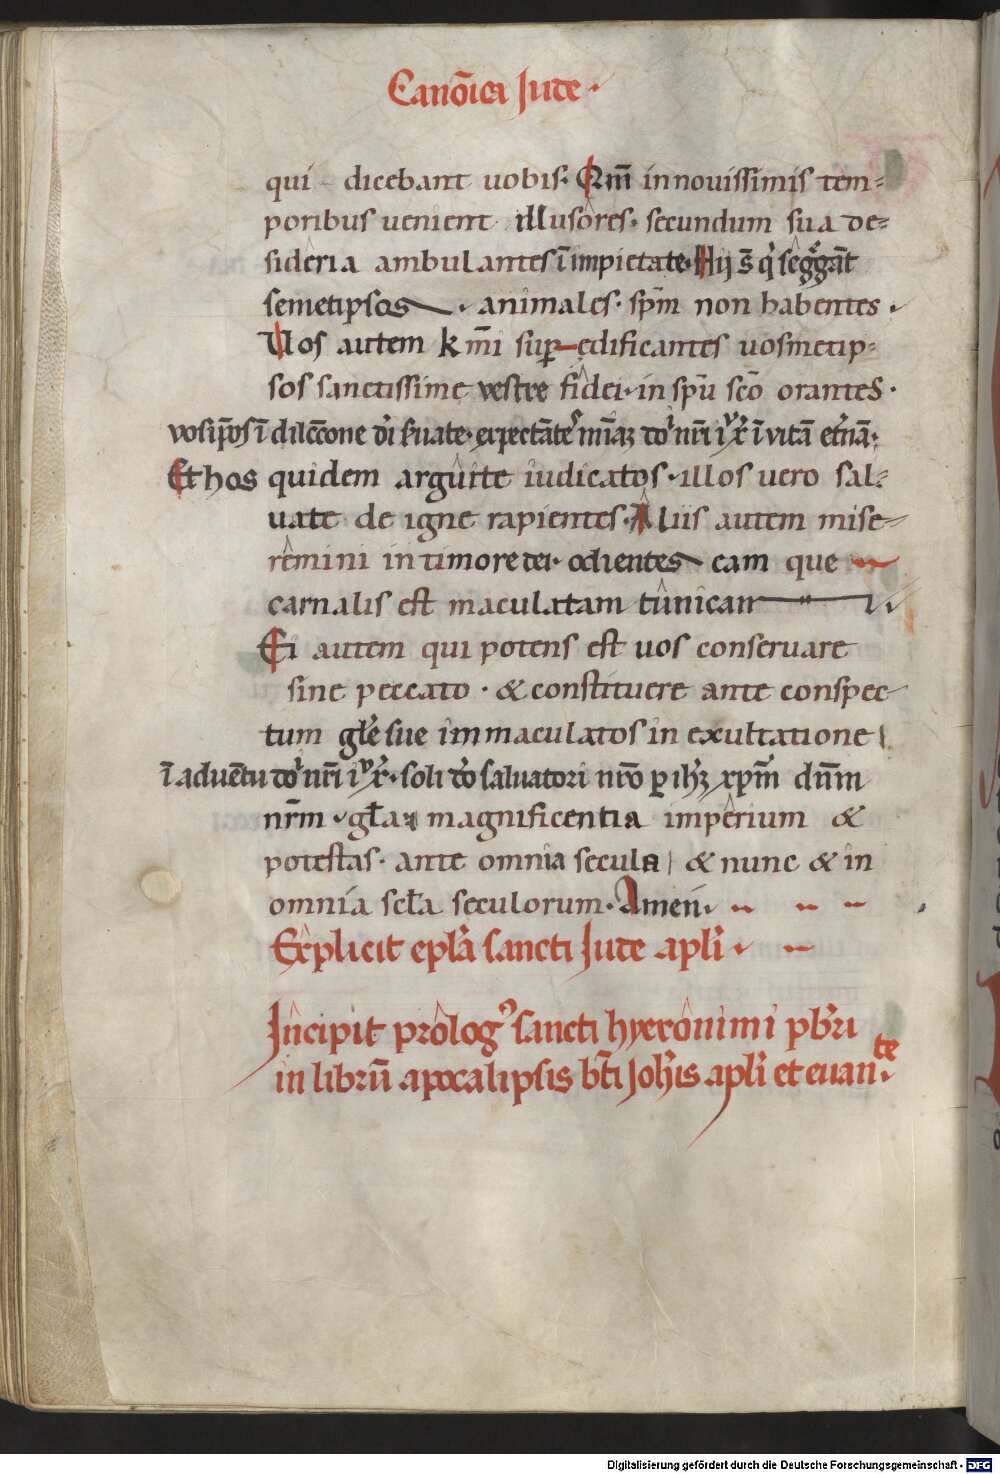 Canōica Jude
qui dicebant uobis. Qm̄ in nouissimis tem-
poribus uenient illusores. secundum sua de-
sideria ambulantes ī impietate. Hij s̄t q̇ seg̾gāt
semetipsos. animales. spm̄ non habentes.
Uos autem km̄i sup edificantes uosmetip-
sos sanctissime vestre fidei. in spū sc̄o orantes.
vosip̄os ī dilcc̄one di seruate. expectātes mīaʒ
Et hos quidem arguite iudicatos. illos uero sal-
uate de igne rapientes. Aliis autem mise-
remini in timore dei. odientes eam que
carnalis est maculatam tunicam
Ei autem qui potens est uos conseruare
sine peccato. & constituere ante conspec-
tum gl̄e sue immaculatos in exultatione
ī aduētu dn̄i nr̄i. soli deo saluatori nr̄o p ih̄ʒ xp̄m dn̄m
nr̄m. gl̄a magnificentia imperium &
potestas. ante omnia secula & nunc & in
omnia scl̄a seculorum. Amen.
Explicit epl̄a sancti Jude apl̄i.
Incipit prologꝰ sancti hyeronimi pb̄ri
in librū apocalipsis bt̄i Joh̄is apl̄i et euan-
te
Digitalisierung gefördert durch die Deutsche Forschungsgemeinschaft - DFG